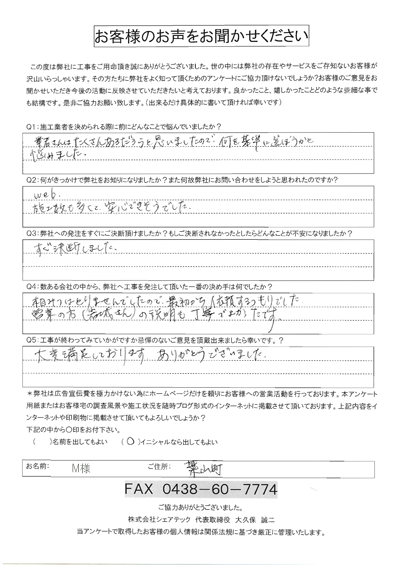 お客様のお声をお聞かせください
この度は弊社に工事をご用命頂き誠にありがとうございました。世の中には弊社の存在やサービスをご存知ないお客様が
沢山いらっしゃいます。その方たちに弊社をよく知って頂くためのアンケートにご協力頂けないでしょうか?お客様のご意見をお
聞かせいただき今後の活動に反映させていただきたいと考えております。良かったこと、嬉しかったことどのような些細な事で
も結構です。是非ご協力お願い致します。(出来るだけ具体的に書いて頂ければ幸いです)
Q1:施工業者を決められる際に前にどんなことで悩んでいましたか?
業者さんはたくさんあるだろうと思いましたので、何を基準に選ぼうかと
悩みました。
Q2:何がきっかけで弊社をお知りになりましたか?また何故弊社にお問い合わせをしようと思われたのですか?
web.
施工数も多くて、安心できそうでした。
Q3:弊社への発注をすぐにご決断頂けましたか?もしご決断されなかったとしたらどんなことが不安になりましたか?
すぐ決断しました。
Q4:数ある会社の中から、弊社へ工事を発注して頂いた一番の決め手は何でしたか?
相みつはとりませんでしたので、最初から依頼するつもりでした
営業の方(さん)の説明も丁寧でよかったです。
Q5:工事が終わってみていかがですか忌憚のないご意見を頂戴出来ましたら幸いです。?
大変満足しております ありがとうございました。
*弊社は広告宣伝費を極力かけない為にホームページだけを頼りにお客様への営業活動を行っております。本アンケート
用紙またはお客様宅の調査風景や施工状況を随時ブログ形式のインターネットに掲載させて頂いております。上記内容をイ
ンターネットや印刷物に掲載させて頂いてもよろしいでしょうか?
下記の中から〇印をお付下さい。
( )名前を出してもよい (〇)イニシャルなら出してもよい
お名前: M様 ご住所: 葉山町
FAX 0438-60-7774
ご協力ありがとうございました。
株式会社シェアテック 代表取締役 大久保 誠二
当アンケートで取得したお客様の個人情報は関係法規に基づき厳正に管理いたします。